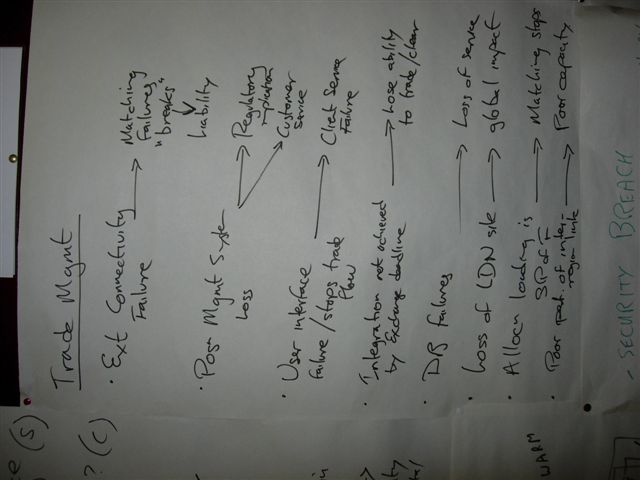 Trade Mgmt
· Ext Connectivity → Matching
Failure Failures
"breaks"
liability
· Posn Mgmt System → Regulatory
Loss
Customer
Service
· User interface → Client Service
failure / stops trade Failure
flow
· Integration not achieved → Lose ability
by Exchange deadline to trade/clear
· DB failures → Loss of service
· Loss of LDN site → global impact
· Allocn loading is → Matching stops
SP of F
· Poor perf. of inter- → Poor capacity
region link
- SECURITY BREACH
(S)
? (C)
WARM